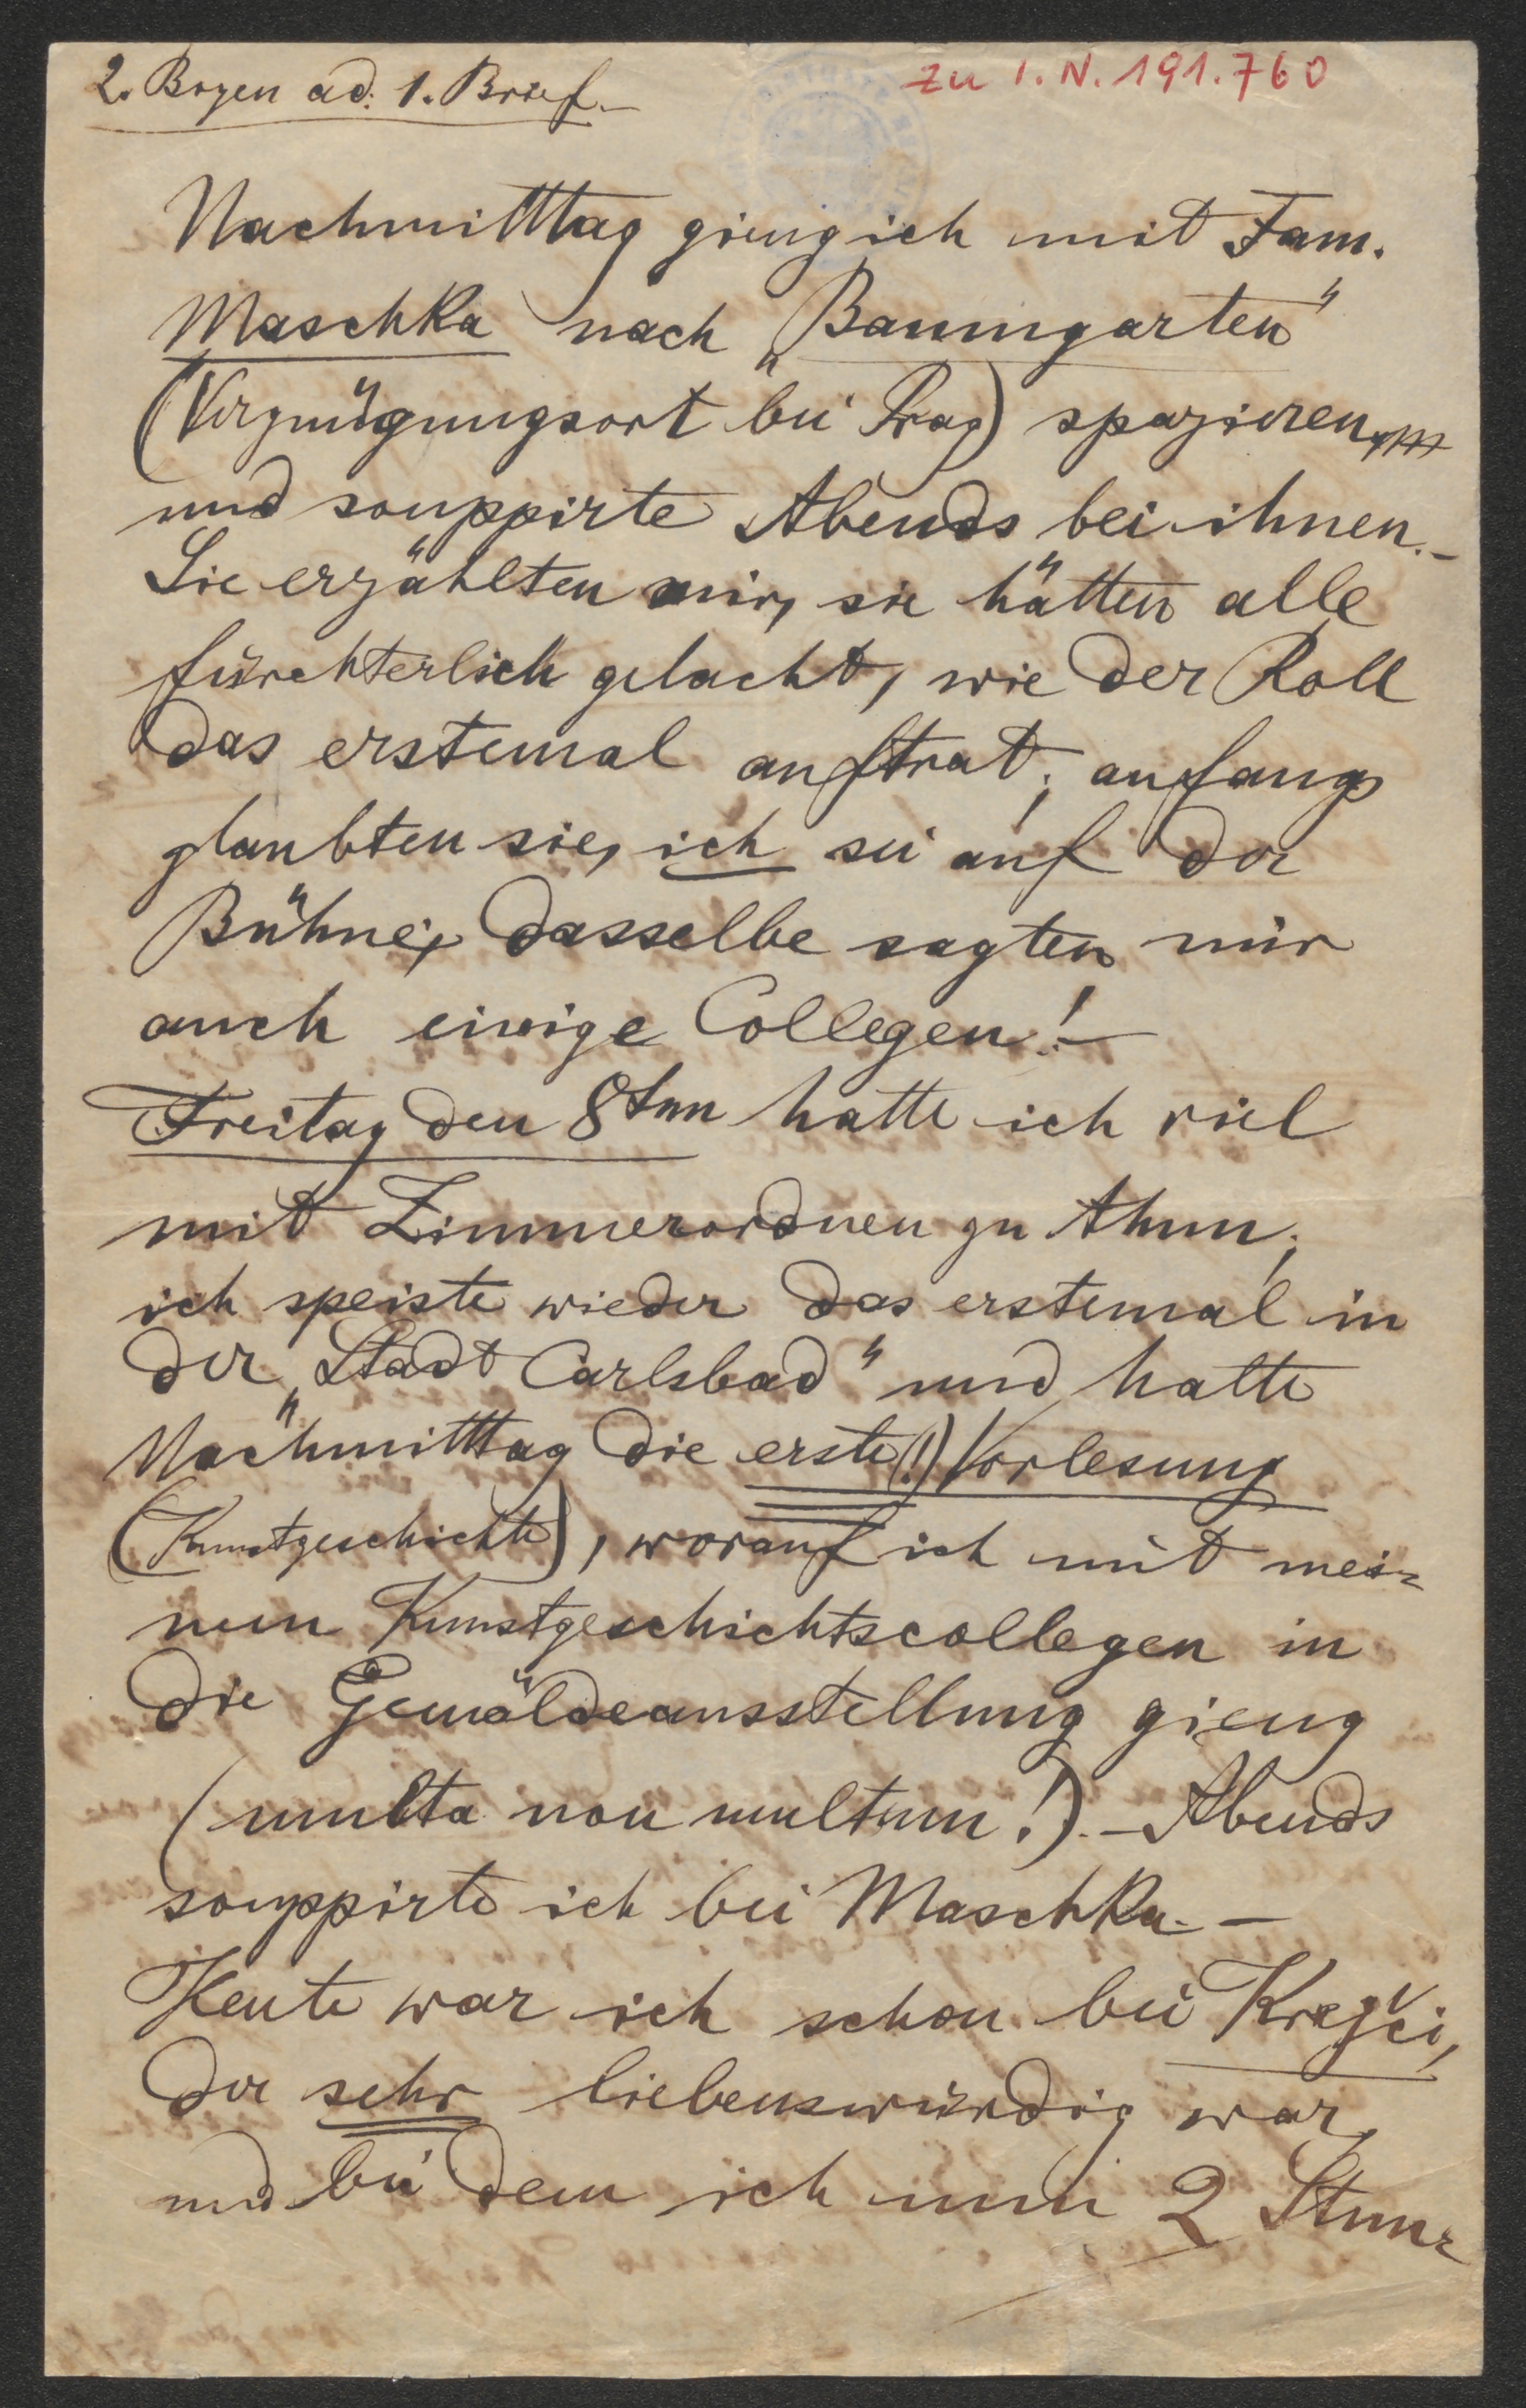 2. Bogen ad. 1. Brief.–
zu I.N. 191.760
Nachmitttag gieng ich mit Fam.
Maschka nach „Baumgarten"
(Vergnügungsort bei Prag) spazieren
und souppirte Abends bei ihnen.–
Sie erzählten mir, sie hätten alle
fürchterlich gelacht, wie der Roll
das erstemal auftrat; anfangs
glaubten sie, ich sei auf der
Bühne; dasselbe sagten mir
auch einige Collegen!–
Freitag den 8ten hatte ich viel
mit Zimmerordnen zu thun;
ich speiste wieder das erstemal in
der „Stadt Carlsbad" und hatte
Nachmitttag die erste(!) Vorlesung
(Kunstgeschichte), worauf ich mit mei=
nem Kunstgeschichtscollegen in
die Gemäldeausstellung gieng
(multa non multum!).– Abends
souppirte ich bei Maschka.–
Heute war ich schon bei Krejči,
der sehr liebenswürdig war,
und bei dem ich nun 2 Stun=